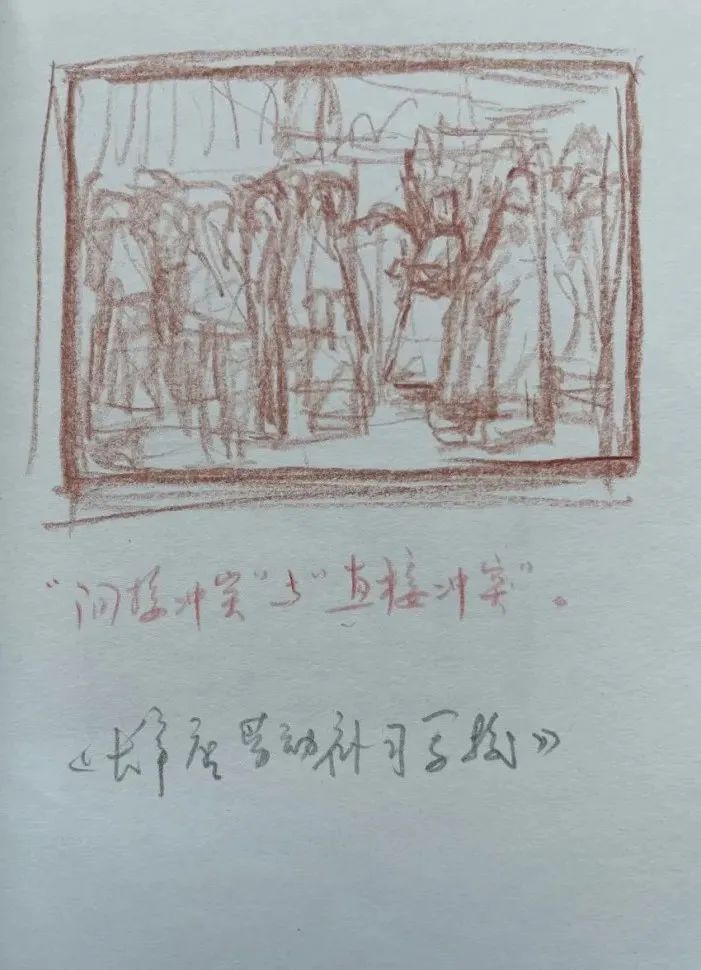 “间接冲突”与“直接冲突”。
《长辛店劳动补习学校》